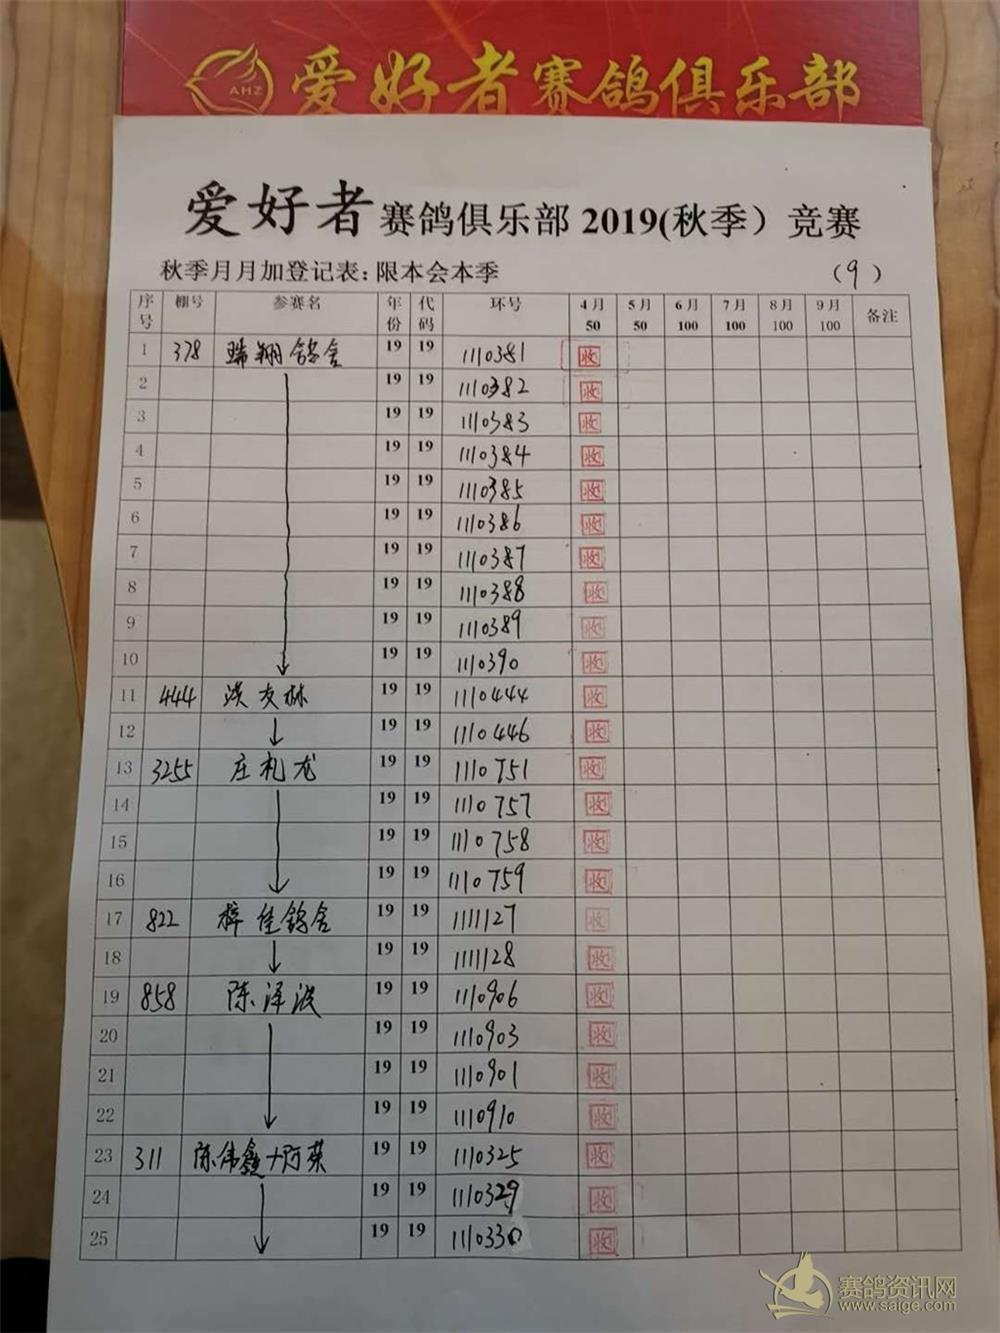 AHZ 爱好者赛鸽俱乐部
爱好者赛鸽俱乐部 2019(秋季）竞赛
秋季月月加登记表：限本会本季 （9）
序号 棚号 参赛名 年份 代码 环号 4月 50 5月 50 6月 100 7月 100 8月 100 9月 100 备注
1 378 瑞翔鸽舍 19 19 1110381 收
2 19 19 1110382 收
3 19 19 1110383 收
4 19 19 1110384 收
5 19 19 1110385 收
6 19 19 1110386 收
7 19 19 1110387 收
8 19 19 1110388 收
9 19 19 1110389 收
10 19 19 1110390 收
11 444 友林 19 19 1110444 收
12 19 19 1110446 收
13 3255 庄礼龙 19 19 1110751 收
14 19 19 1110757 收
15 19 19 1110758 收
16 19 19 1110759 收
17 822 梓佳鸽舍 19 19 1111127 收
18 19 19 1111128 收
19 858 陈泽波 19 19 1110906 收
20 19 19 1110903 收
21 19 19 1110901 收
22 19 19 1110910 收
23 311 陈伟鑫+阿荣 19 19 1110325 收
24 19 19 1110329 收
25 19 19 1110330 收
赛鸽资讯网
www.saige.com